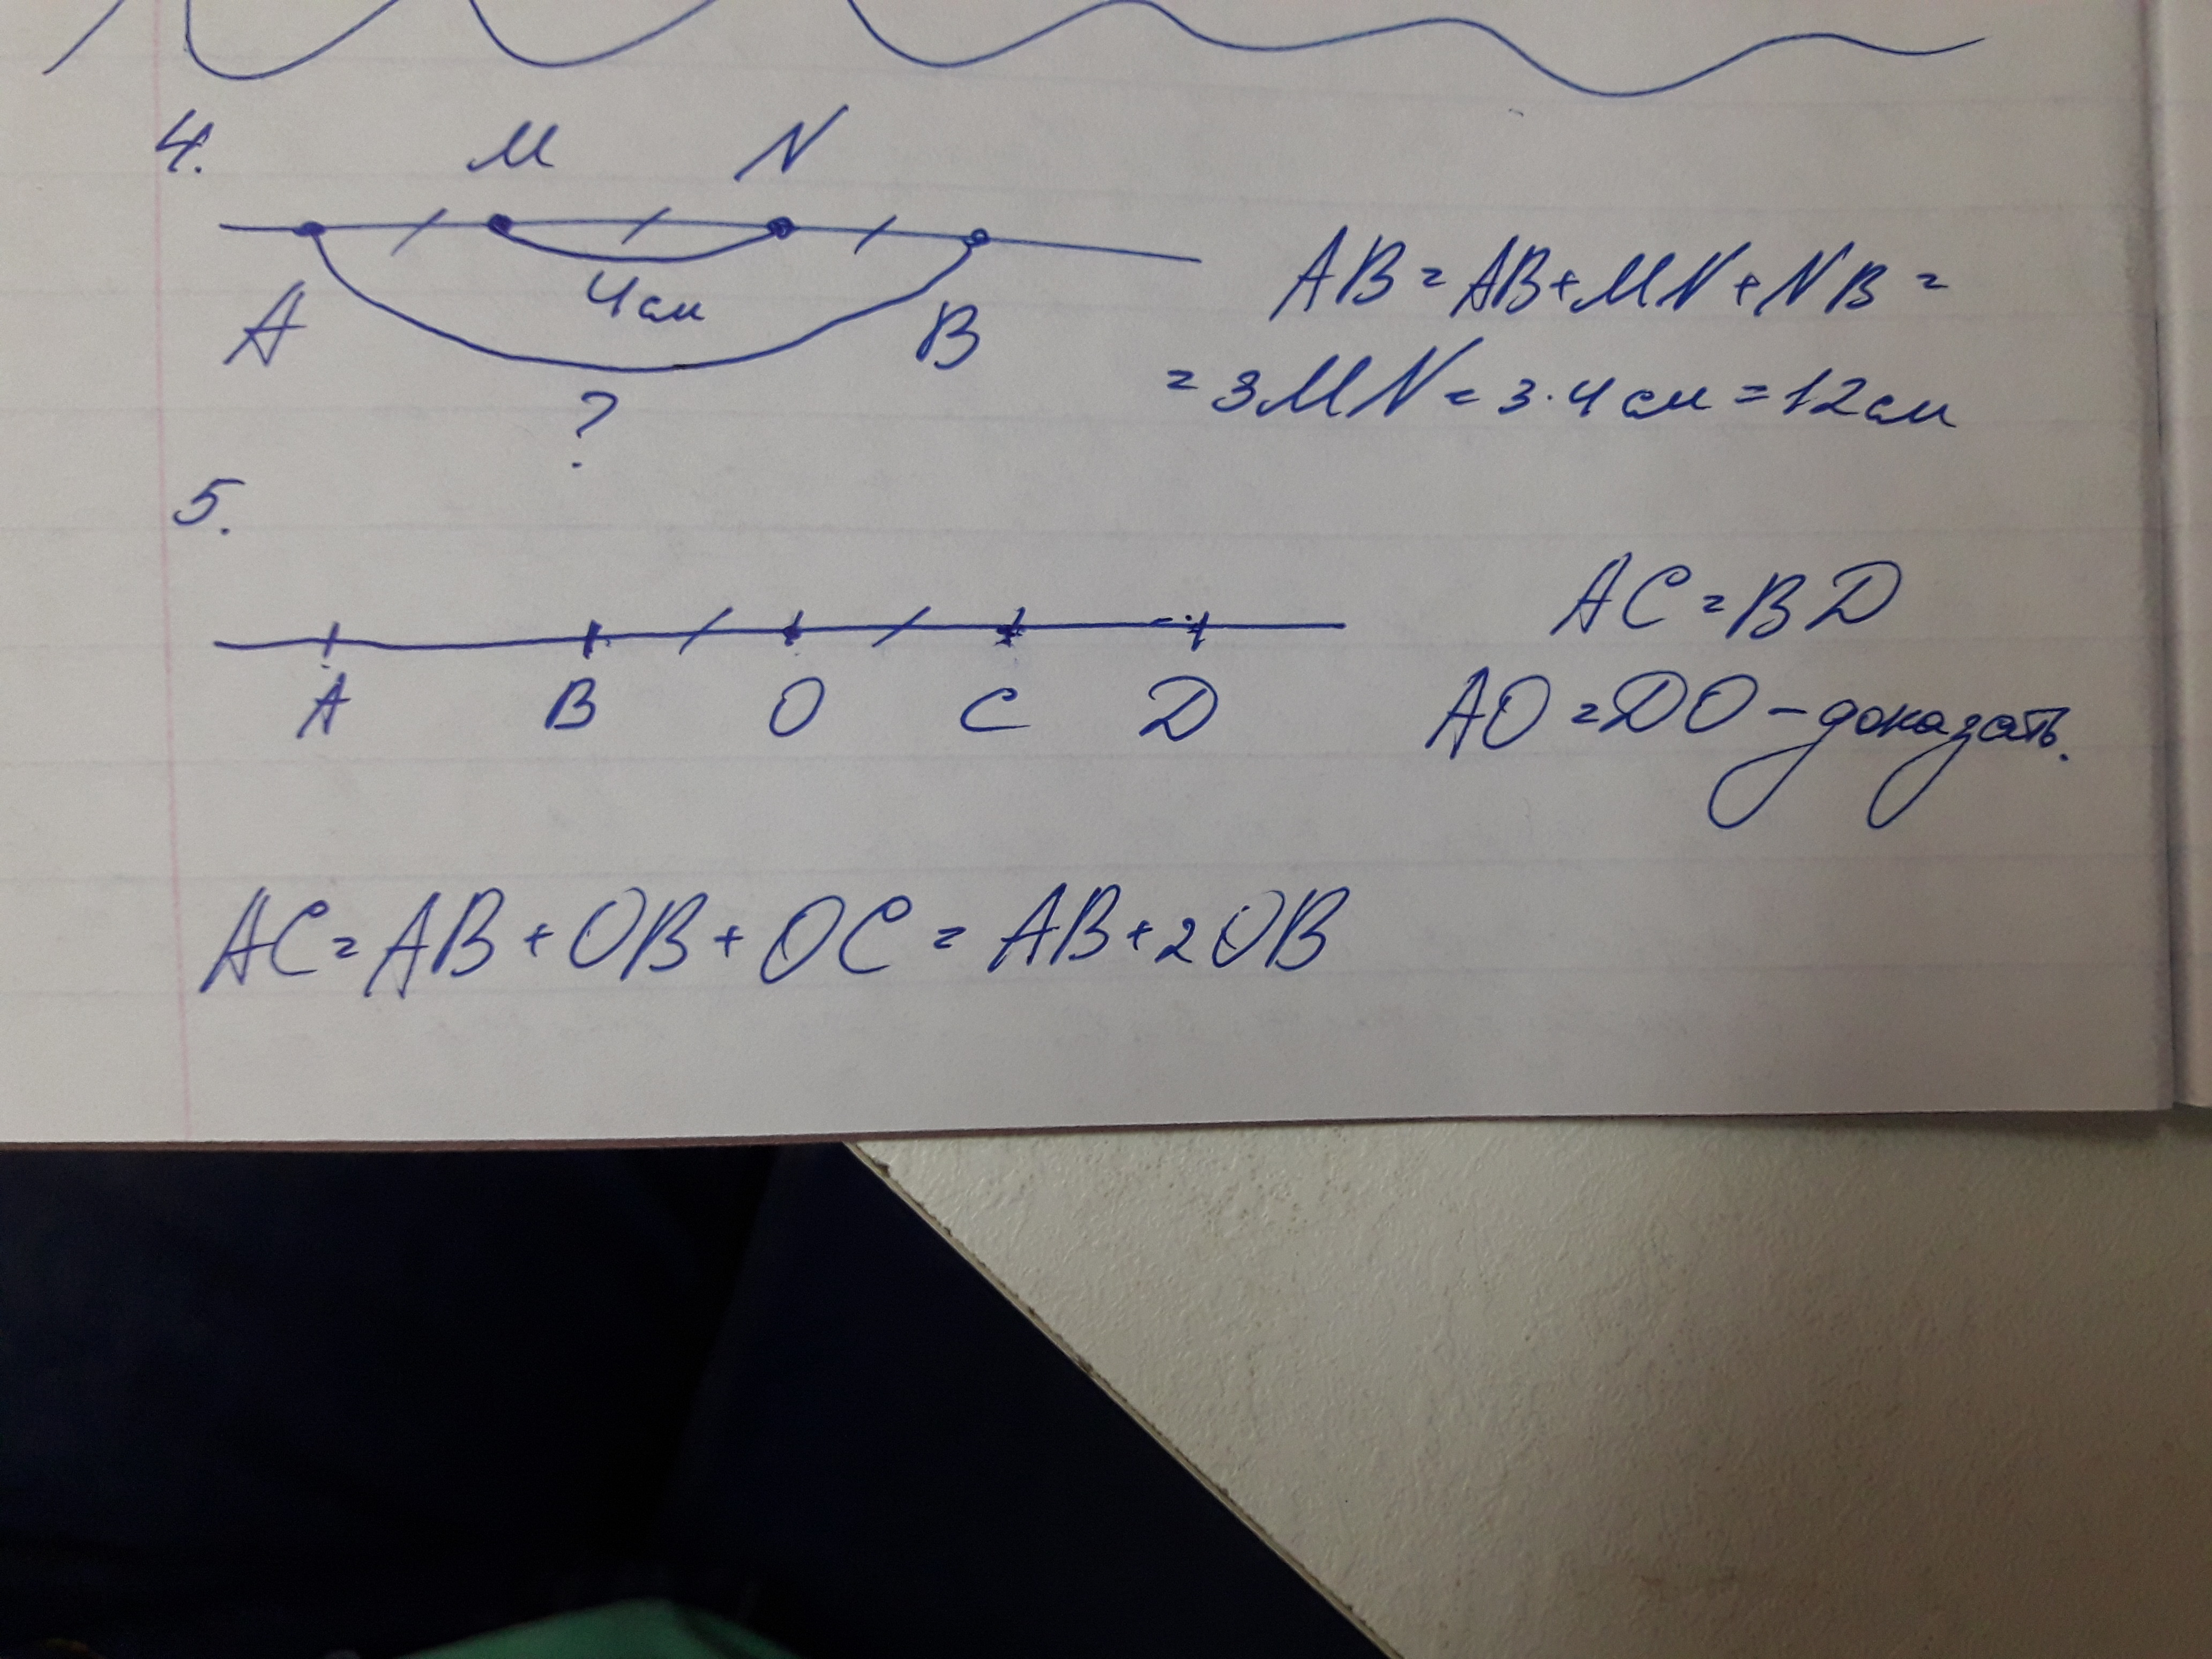 4.
M N
4см
A B
?
AB = AB + MN + NB =
= 3MN = 3·4 см = 12 см
5.
A B O C D
AC = BD
AO = DO – доказать.
AC = AB + OB + OC = AB + 2OB